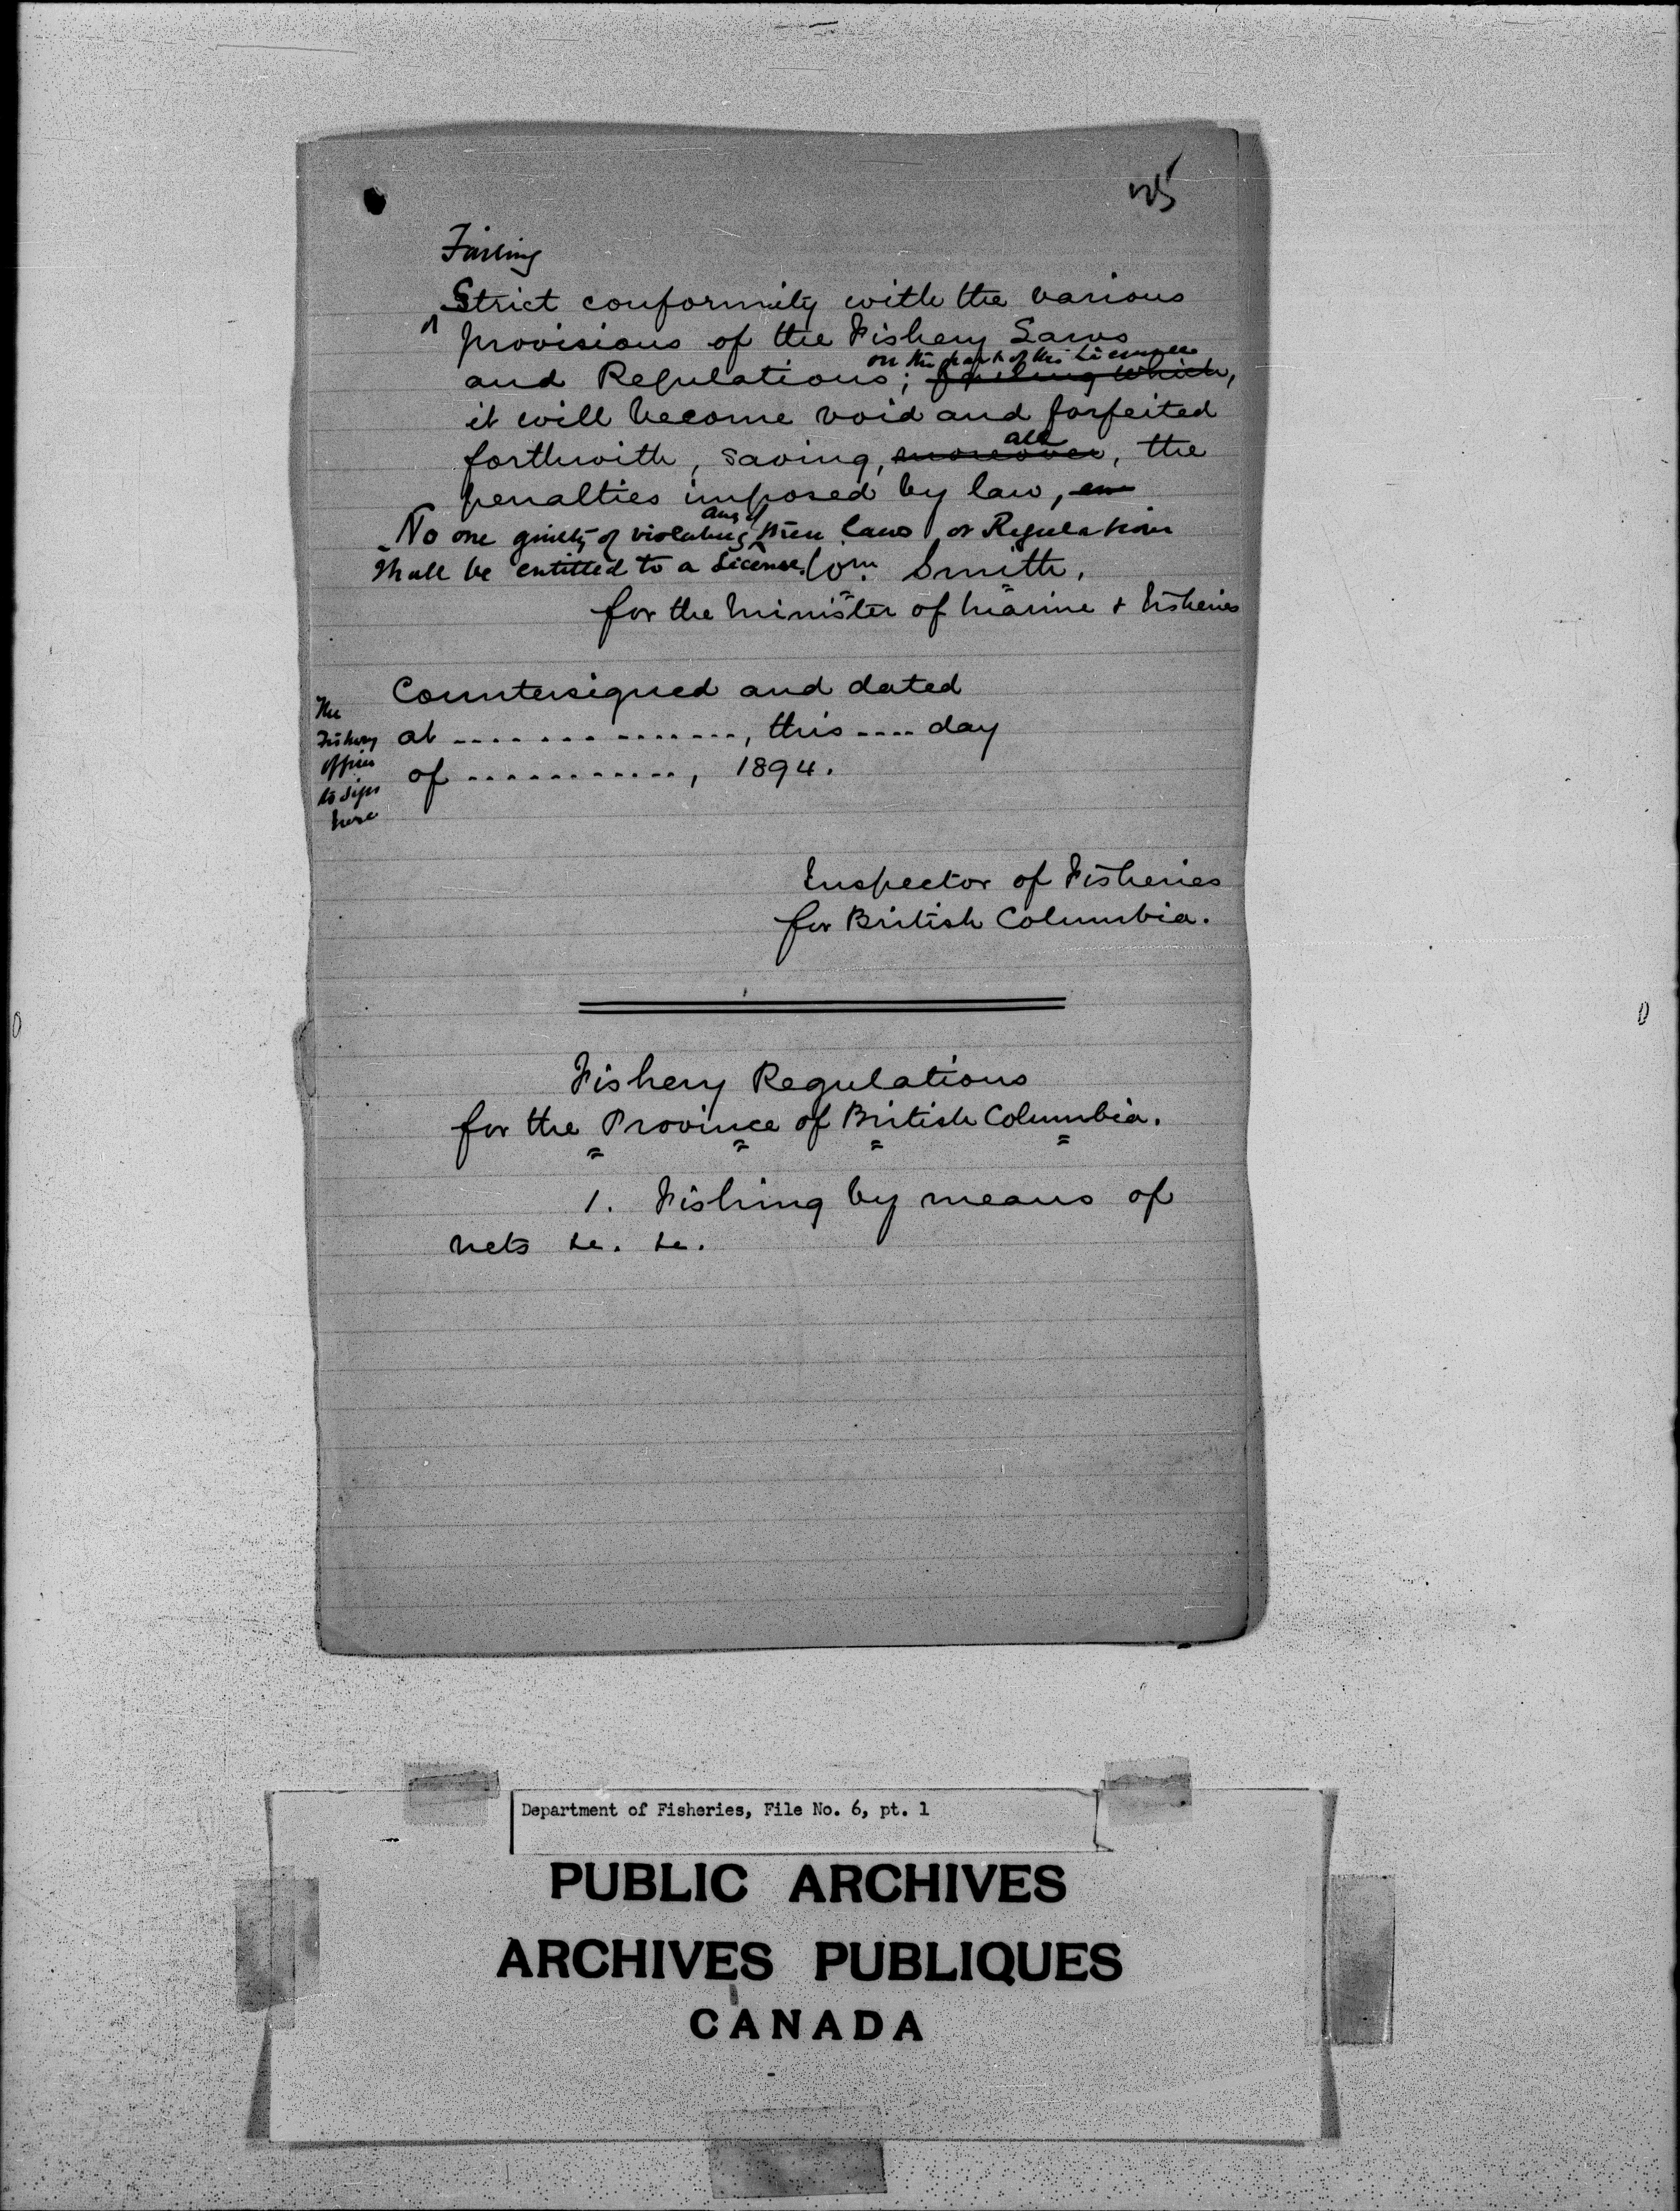 125
Failing
Strict conformity with the various
provisions of the Fishery Laws
on the part of the Licensee
and Regulations; failing which,
it will become void and forfeited
all
forthwith, saving, moreover, the
penalties imposed by law,
any of
No one guilty of violating these laws or Regulations
shall be entitled to a License. Wm. Smith,
for the Minister of Marine & Fisheries
Countersigned and dated
at ..............., this .... day
of ............, 1894.
The
Fishery
officer
to sign
here
Inspector of Fisheries
for British Columbia.
Fishery Regulations
for the Province of British Columbia.
1. Fishing by means of
nets &c. &c.
Department of Fisheries, File No. 6, pt. 1
PUBLIC ARCHIVES
ARCHIVES PUBLIQUES
CANADA